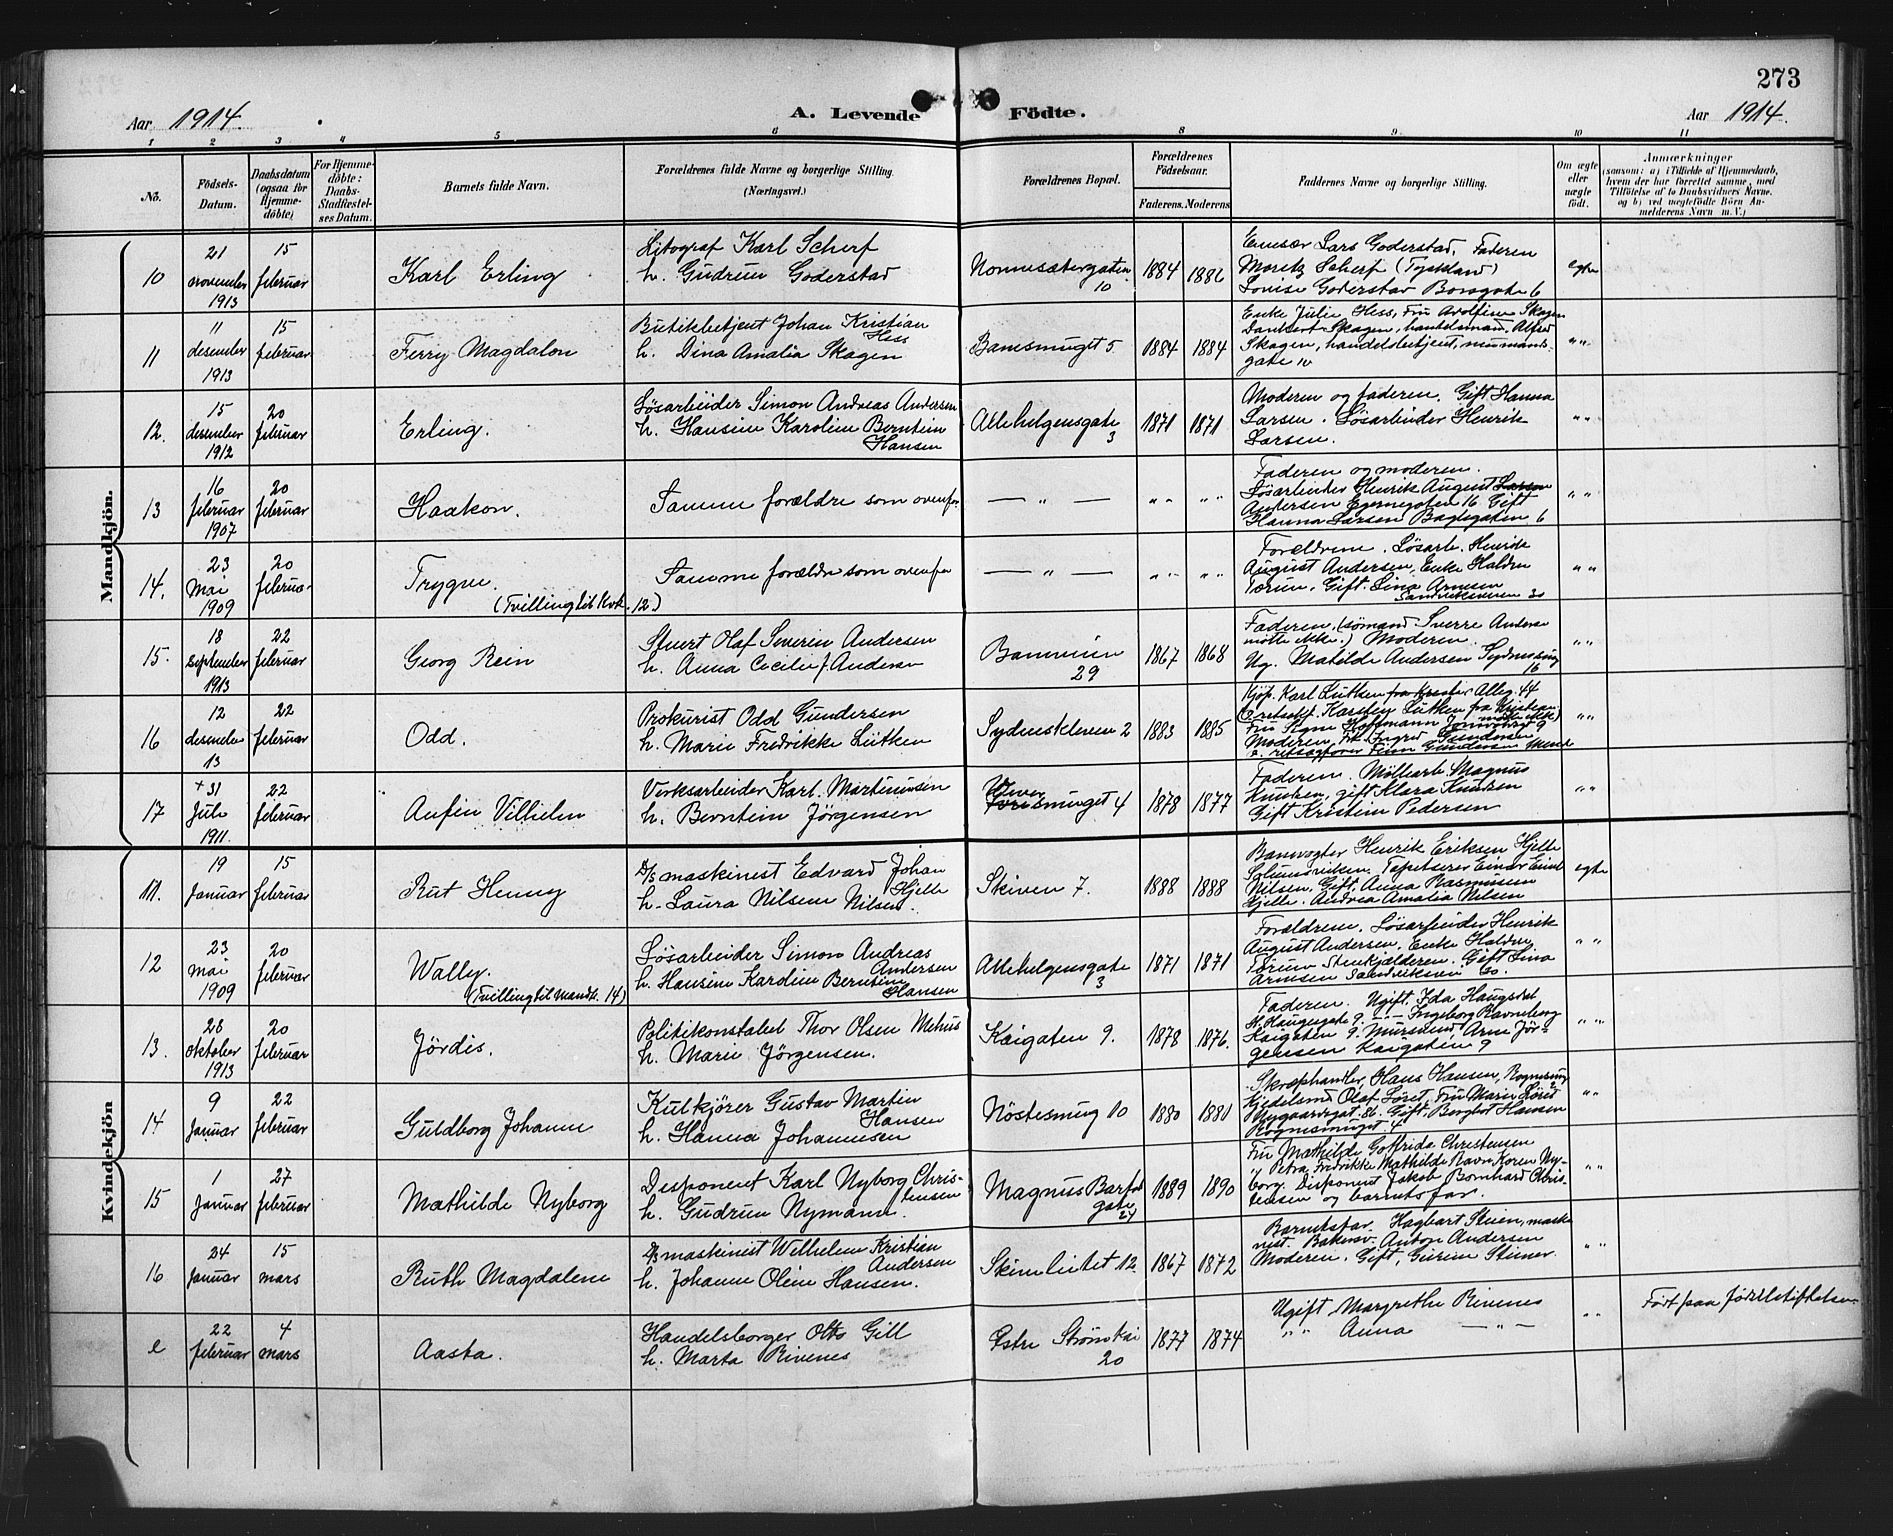 273
Aar 1914.
A. Levende Födte.
Aar 1914.
1 2 3 4 5 6 8 9 10 11
No.
Födsels-Datum.
Daabsdatum (ogsaa for Hjemme-döbte)
For Hjemme-döbte: Daabs-Stadfæstel-ses Datum.
Barnets fulde Navn.
Forældrenes fulde Navne og borgerlige Stilling.
(Næringsvei.)
Forældrenes Bopæl.
Forældrenes Födselsaar.
Faderens. Moderens
Faddernes Navne og borgerlige Stilling.
Om ægte eller uægte födt.
Anmærkninger
(saasom: a) i Tilfælde af Hjemmedaab,
hvem der har forrettet samme, med
Tilföielse af to Daabsvidners Navne.
og b) ved uegtefödte Börn An-
melderens Navn m. V.)
Mandkjön.
10
21 november 1913
15 februar
Karl Erling
Litograf Karl Scherf
h. Gudrun Goderstad
Nonnesætergaten 10
1884 1886
Lars Goderstad, Faderen
Moritz Scherf (Tyskland)
Lovise Goderstad Borsgate 6
egte
11
11 desember 1913
15 februar
Ferry Magdalon
Butikbetjent Johan Kristian Hess
h. Dina Amalia Skagen
Banesmuget 5
1884 1884
Enke Julie Hess, Fru Avolfine Skagen
Dankert Skagen, handelsmand, Alfred
Skagen, handelsbetjent, neumands-
gate 10
" "
12.
15 desember 1912
20 februar
Erling.
Løsarbeider Simon Andreas Andersen
h. Hansine Karoline Berntine Hansen
Allehelgensgate 3
1871 1871
Moderen og faderen. Gift Hanna
Larsen. Løsarbeider Henrik
Larsen.
" "
13
16 februar 1907
20 februar
Haakon.
Samme forældre som ovenfor
— " —
" " " "
Faderen og moderen.
Løsarbeider Henrik August Larsen
Andersen Egernegaten 16 Gift
Hanna Larsen Baglergaten 6
" "
14.
23 Mai 1909
20 februar
Trygve.
(Tvilling til Kvk. 12.)
Samme forældre som ovenfor
— " —
" " " "
Forældrene. Løsarb. Henrik
August Andersen, Enke Haldre
Torun, Gift. Lina Arnesen
Sandviksveien 30
" "
15.
18 september 1913
22 februar
Georg Rein
Stuert Olaf Severin Andersen
h. Anna Cecilie f. Andersen
Baneveien 29
1867 1868
Faderen, (sømand Sverre Andersen
møtte ikke.) Moderen.
Ug. Mathilde Andersen 16
" "
16
12 desember 13
22 februar
Odd.
Prokurist Odd Gundersen
h. Marie Fredrikke Lütken
Sydneskleven 2
1883 1885
Kjøp. Karl Lütken fra Kristia Alleg. 44
Karsten Lütken fra Kristian
Fru Signe Hoffmann
Moderen, Frk. Ingrid Gundersen
Finn Gundersen
" "
17
+31 Juli 1911.
22 februar
Aufin Vilhelm
Verksarbeider Karl. Martiniusen
h. Berntine Jörgensen
4
1878 1877
Faderen. Møllearb. Magnus
Knutsen, gift Klara Knutsen
Gift Kristine Pedersen
" "
Kvindekjön
11.
19 Januar
15 februar
Rut Henny
D/s maskinist Edvard Johan Hjelle
h. Laura Nilsine Nilsen.
Skiven 7.
1888 1888
Banevogter Henrik Eriksen Hjelle
Tapetserer Einar Emil
Nilsen, Gift, Anna Rasmussen
Hjelle. Andrea Amalia Nilsen
egte
12
23 mai 1909
20 februar
Wally.
(Tvilling til mandk. 14)
Løsarbeider Simon Andreas Andersen
h. Hansine Karoline Berntine Hansen
Allehelgensgate 3
1871 1871
Forældrene. Løsarbeider Henrik
August Andersen, Enke Haldre
Torun Stenkjælderen. Gift Lina
Arnesen Sandviksveien 30.
" "
13.
28 oktober 1913
20 februar
Jördis.
Politikonstabel Thor Olsen Mehus
h. Marie Jörgensen.
Kaigaten 9.
1878 1876.
Faderen. Ugift. Ida Haugsdal
H. Haugesgate 9. — Ingeborg Ravneberg
Kaigaten 9. Mursvend Arne Jör-
gensen Kaigaten 9
" "
14
9 Januar
22 februar
Guldborg Johanne
Kulkjører Gustav Martin Hansen
h. Hanna Johannesen
Nöstesmug 10
1880 1881
Skraphandler, Hans Hansen, Rognesmug
Olaf Söret, Fru Marie Söret
Nygaardsgat. 86. Gift. Borghot Hansen
Rognesmuget. 4
" "
15
1 Januar
27 februar
Mathilde Nyborg
Disponent Karl Nyborg Chris-tensen
h. Gudrun Nymann.
Magnus Barfot gate 24
1889 1890
Fru Mathilde Gotfrida Christensen
" Petra Fredrikke Mathilde Ravn Koren Ny-
borg. Disponent Jakob Bernhard Chris-
tensen og barnets far.
" "
16
24 Januar
15 mars
Ruth Magdalene
D/s maskinist Wilhelm Kristian Andersen
h. Johanne Oline Hansen.
12
1867 1872
Barnetsfar. Hagbart Stein, maski
nist. Anton Andersen
Moderen. Gift,
" "
e
22 februar
4 mars
Aasta.
Handelsborger Otto Gill
h. Marta Rivenes
Østre Strømkai 20
1877 1874
Ugift Margrethe Rivenes
" " Anna — " —
" "
Født paa fødselstiftelsen